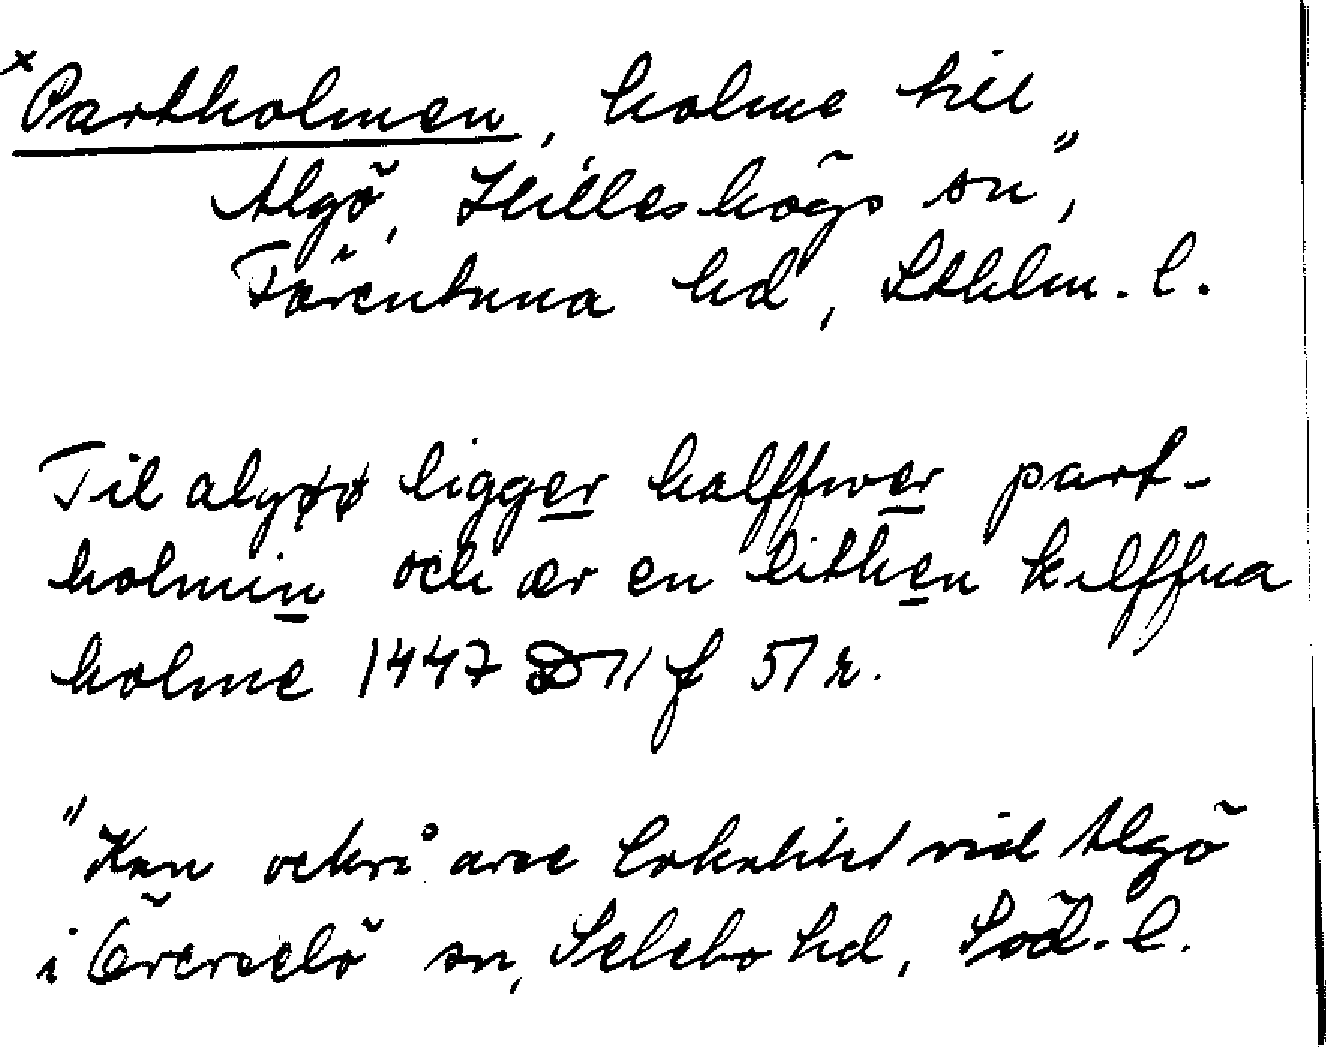 ×Partholmen, holme till
Algö, Hilleshögs sn",
Färentuna hd, Sthlm. l.
Til algøø ligger halffwer part-
holmin och ær en lithen kilffna
holme 1447 D 11 f 51 r.
"Kan också avse lokalitet vid Algö
i Överselö sn, Selebo hd, Söd. l.